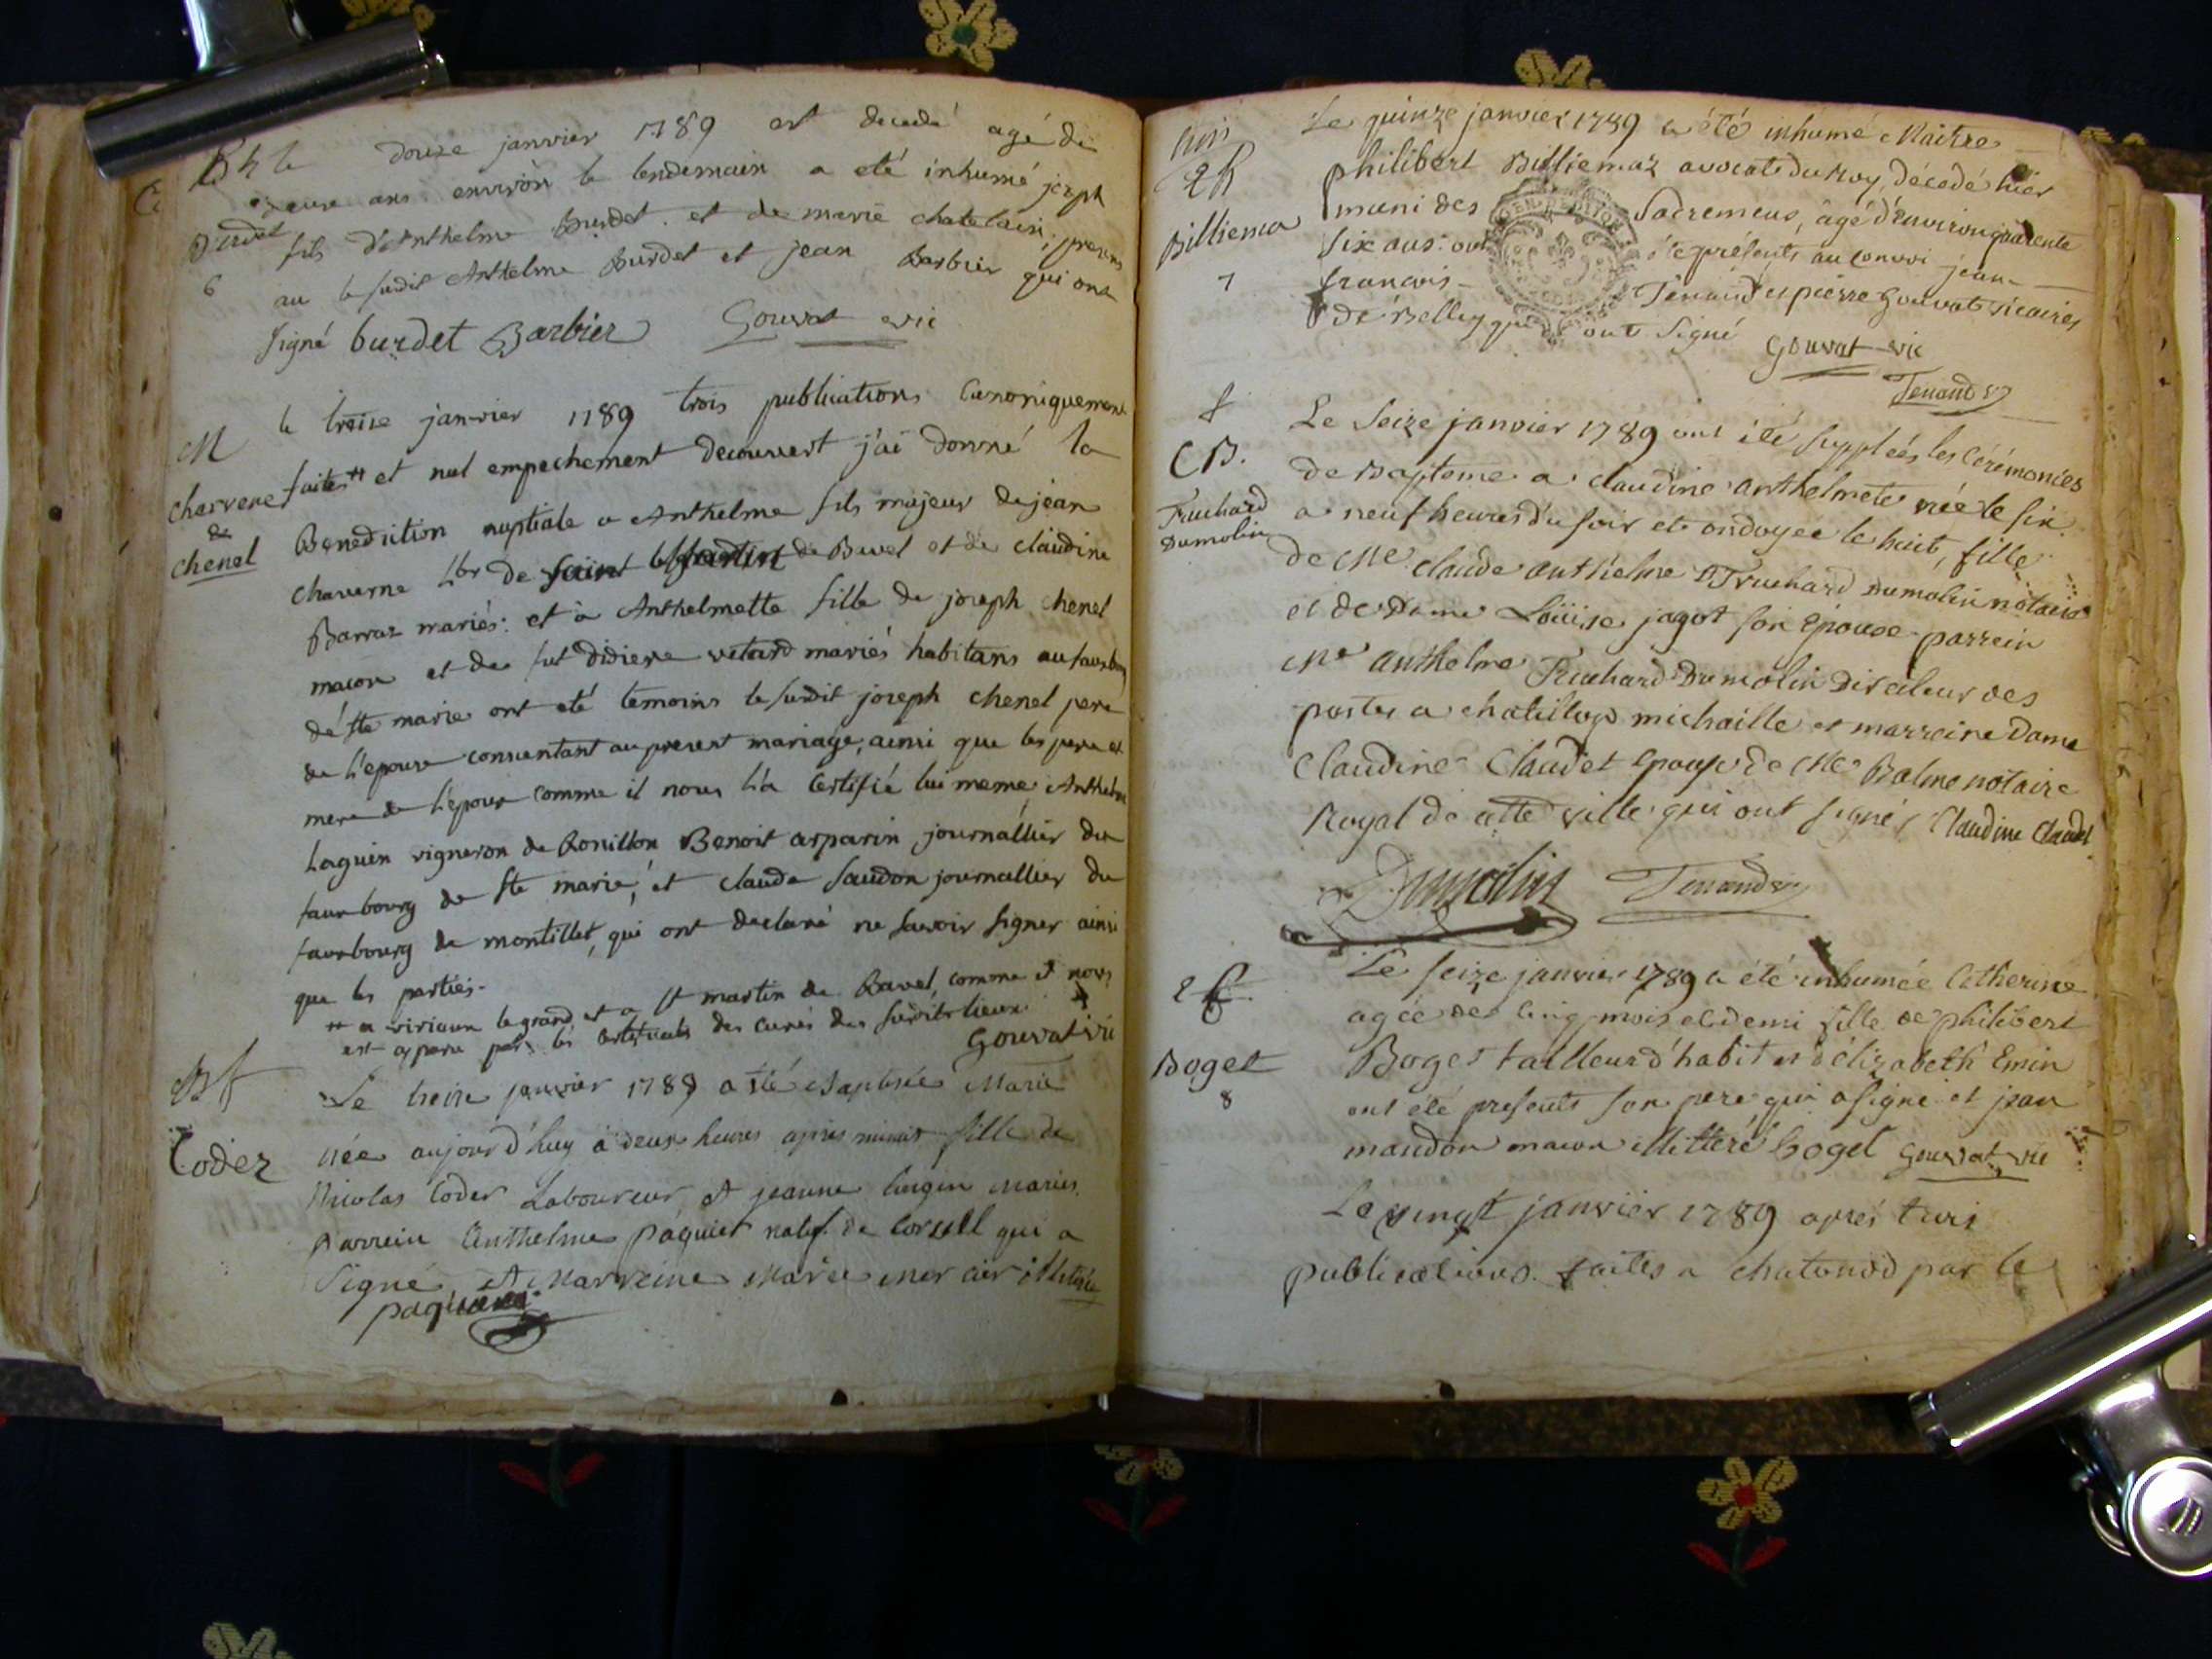 le douze janvier 1789 est decedé agé de
deux ans environ le lendemain a eté inhumé joseph
Burdet
fils d'Anthelme Burdet et de marie chatelain, presens
6
au le susdit Anthelme Burdet et jean Barbier qui ont
signé burdet Barbier Gouvat vic
M
le treise janvier 1789 trois publications Canoniquement
charvene
&
chenel
faites # et nul empechement decouvert j'ai donné la
Benediction nuptiale a Anthelme fils majeur de jean
chaverne Lbr de de Bavel et de claudine
Barraz mariés: et à Anthelmette fille de joseph chenel
macon et de fut didiere vetard mariés habitans au fauxbourg
de ste marie ont eté temoins le susdit joseph chenel pere
de l'epouse consentant au present mariage, ainsi que les pere et
mere de l'epoux comme il nous l'a certifié lui meme Anthelme
Laguin vigneron de Ronillon Benoit asparin journallier du
faux bourg de ste marie, et claude saudon journallier du
fauxbourg de montillet, qui ont declaré ne savoir signer ainsi
que les parties.
# a virieux le grand et a st martin de Bavel, comme il nous
est apparu par les certificats des curés des susdits lieux
Gouvat vic
Bf
Coder
Le treise janvier 1789 a été Baptisée Marie
née aujourd'huy à deux heures apres minuit fille de
Nicolas Coder Laboureur et jeanne lingin Mariés.
Parrein Anthelme Paquier natif de Corcell qui a
Signé et Marreine Marie mercier illiterée
paquier
Le quinze janvier 1789 a été inhumé Maitre
philibert Billiemaz avocat du Roy, décedé hier
Billiema
7
muni des Sacremens, âgé d'environ quarente
six ans: ont été présents au convoi jean
francois Tenand et pierre Gouvat vicaires
de Belley qui ont signé
Gouvat vic
Tenand v
f
CB.
Truchard
Dumolin
Le Seize janvier 1789 ont été suppléés les Cérémonies
de Bapteme a claudine anthelmete née le six
a neuf heures du soir et ondoyee le huit, fille
de Me claude anthelme Truchard Dumolin notaire
et de Dame Loüise jagot son Epouse parrein
Me anthelme Truchard Dumolin Directeur des
postes a chatillon michaille et marreine Dame
Claudine Claudet epouse de Me Balme notaire
Royal de cette ville qui ont signé, Claudine Claudet
Dumolin Tenand v
Le seize janvier 1789 a été inhumée Catherine
agée de cinq mois et demi fille de philibert
Boget
8
Boget tailleur d'habit et d'élizabeth Emin
ont été presents son pere qui a signé et jean
maudon macon illitteré boget Gouvat vic
Le vingt janvier 1789 aprés trois
publications faites a chatonod par le